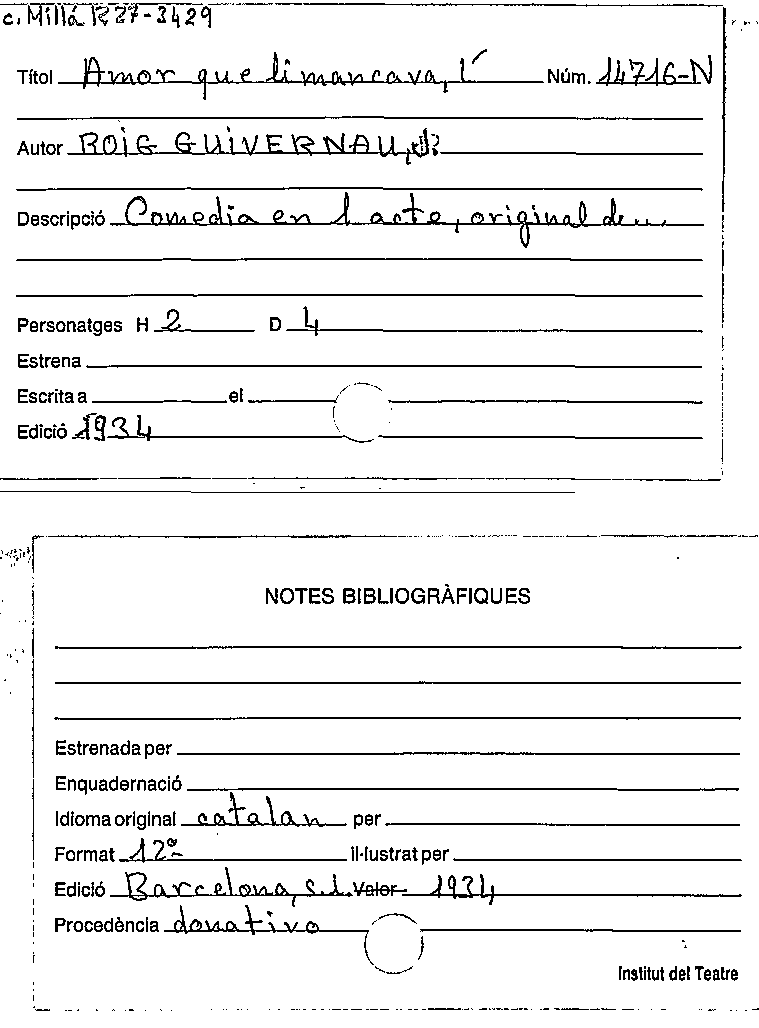 c. Millá R 27-3429
Títol Amor que li mancava, l' Núm. 14716-N
Autor ROIG GUIVERNAU,
Descripció Comedia en 1 acte, original de...
Personatges H 2 D 4
Estrena
Escrita a el
Edició 1934
NOTES BIBLIOGRÀFIQUES
Estrenada per
Enquadernació
Idioma original catalan per
Format 12º
Il·lustrat per
Edició Barcelona, s.i. Valor 1934
Procedència donativo
Institut del Teatre